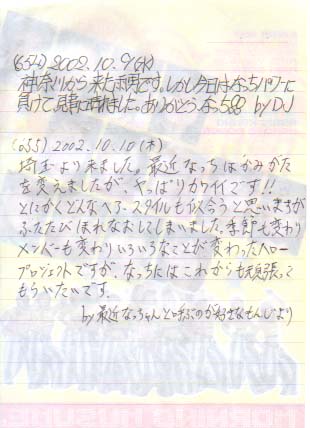 (654) 2002.10.9(水)
神奈川から来た雨男です。しかし今日はなっちパワーに
負けて、見事に晴れました。ありがとう、なっち by DJ
(655) 2002.10.10(木)
埼玉より来ました。最近なっちはかみかた
を変えましたが、やっぱりカワイイです!!
とにかくどんなヘアースタイルも似合うと思いますが
ふたたびほれなおしてしまいました。季節も変わり
メンバーも変わりいろいろなことが変わったハロー
プロジェクトですが、なっちにはこれからも頑張って
もらいたいです。
by 最近なっちゃんと呼ぶのが好きなもんじより
MORNING MUSUME。